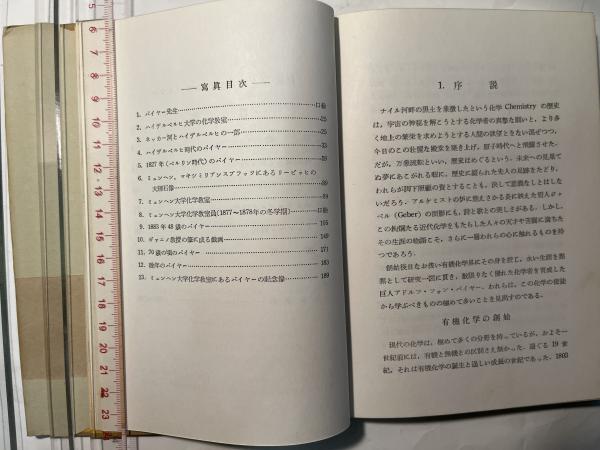 寫眞目次
1. バイヤー先生 口絵
2. ハイデルベルヒ大学の化学教室 25
3. ネッカー河とハイデルベルヒの一部 25
4. ハイデルベルヒ時代のバイヤー 33
5. 1827年(ベルリン時代)のバイヤー 59
6. ミュンヘン,マキシミリアンスプラッツにあるリービッヒの
大理石像 89
7. ミュンヘン大学化学教室 89
8. ミュンヘン大学化学教室員(1877〜1878年の冬学期) 口絵
9. 1883年48歳のバイヤー 105
10. 教授の筆に成る戯画 149
11. 70歳の頃のバイヤー 171
12. 晩年のバイヤー 183
13. ミュンヘン大学化学教室にあるバイヤーの記念像 189
1. 序 説
ナイル河畔の黒土を象徴したという化学 Chemistry の歴史
は,宇宙の神秘を解こうとする化学者の真摯な願いと,より多
く地上の繁栄を求めようとする人間の欲望とをない混ぜつつ,
今日のこの壮麗な殿堂を築き上げ,原子時代へと飛躍させた.
だが,万象流転といい,歴史はめぐるという.未来への見果て
ぬ夢にあこがれる程に,歴史に綴られた先人の足跡をたどり,
われらが脚下照顧の資とすることも,決して意義なしとはしな
いだろう.アルケミストの炉に燃えさかる炎に映えた哲人ゲェ
ベル (Geber) の面影にも,詩と歌との美しさがある.しかし,
この絢爛たる近代化学をもたらした人々の天才や苦闘に満ちた
その生涯の物語こそ,さらに一層われらの心に触れるものを持
つであろう.
創始後日なお浅い有機化学界にその身を投じ,永い生涯を黙
黙として研究一途に貫き,数限りなく優れた化学者を育成した
巨人アドルフ・フォン・バイヤー.われらは,この化学の使徒
から学ぶべきものの極めて多いことを見出すのである.
有機化学の創始
現代の化学は,極めて多くの分野を持っているが,およそ一
世紀前には,有機と無機との区別さえ無かった.過ぐる 19 世
紀,それは有機化学の誕生と逞しい成長の世紀であった.1803
5
6
7
8
9
10
11
12
13
14
15
16
17
18
19
20
21
22
23